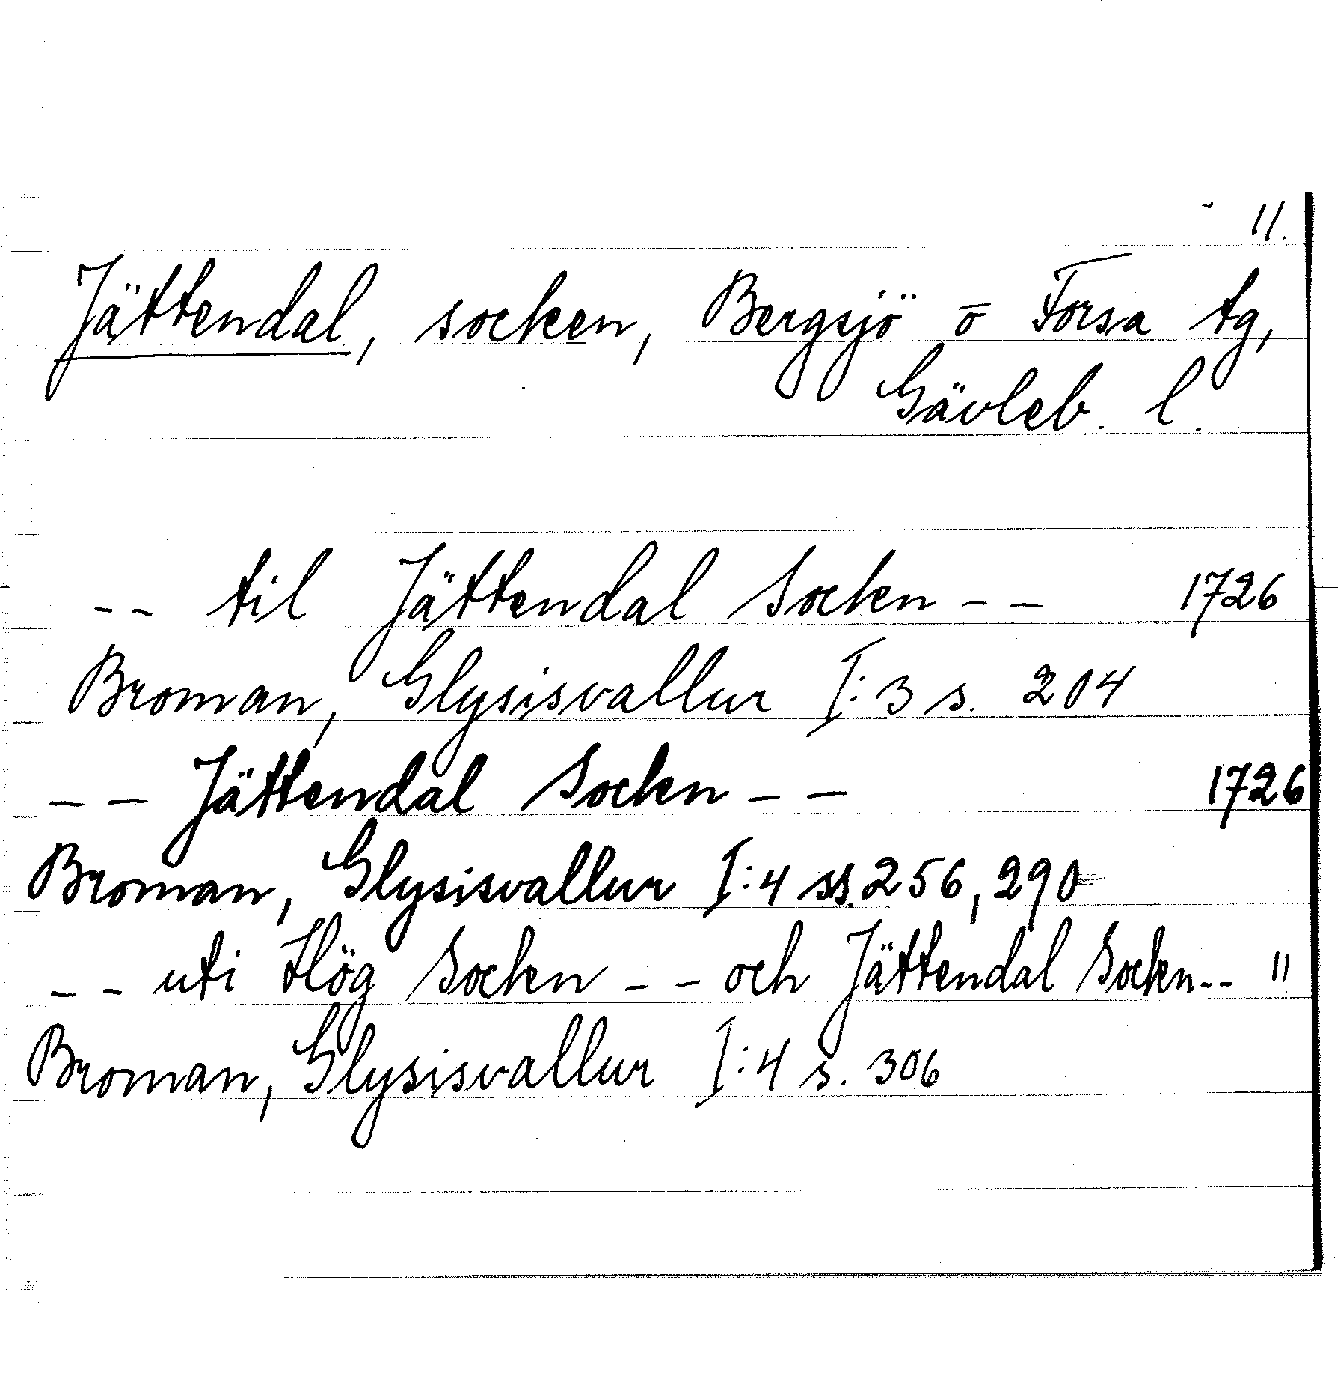 11.
Jättendal, socken, Bergsjö o Forsa tg,
Gävleb. l.
-- til Jättendal Socken -- 1726
Broman, Glysisvallur I:3 s. 204
-- Jättendal Socken -- 1726
Broman, Glysisvallur I:4 ss. 256, 290
-- uti Hög Socken -- och Jättendal Socken -- "
Broman, Glysisvallur I:4 s. 306